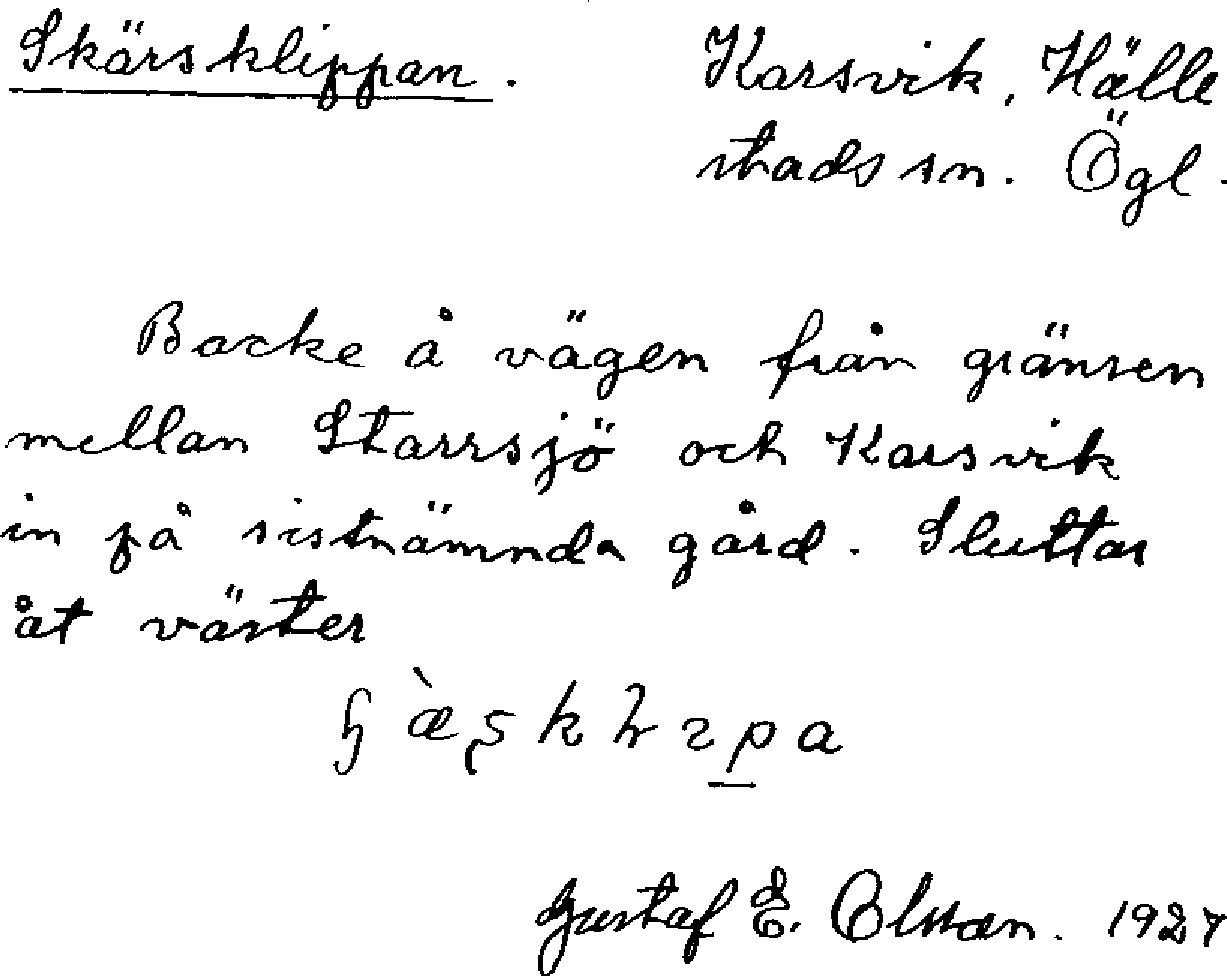 Skärsklippan. Karsvik, Hälle
stads sn. Ögl.
Backe å vägen från gränsen
mellan Starrsjö och Karsvik
in på sistnämnda gård. Sluttar
åt väster
Gustaf E. Olsson. 1927